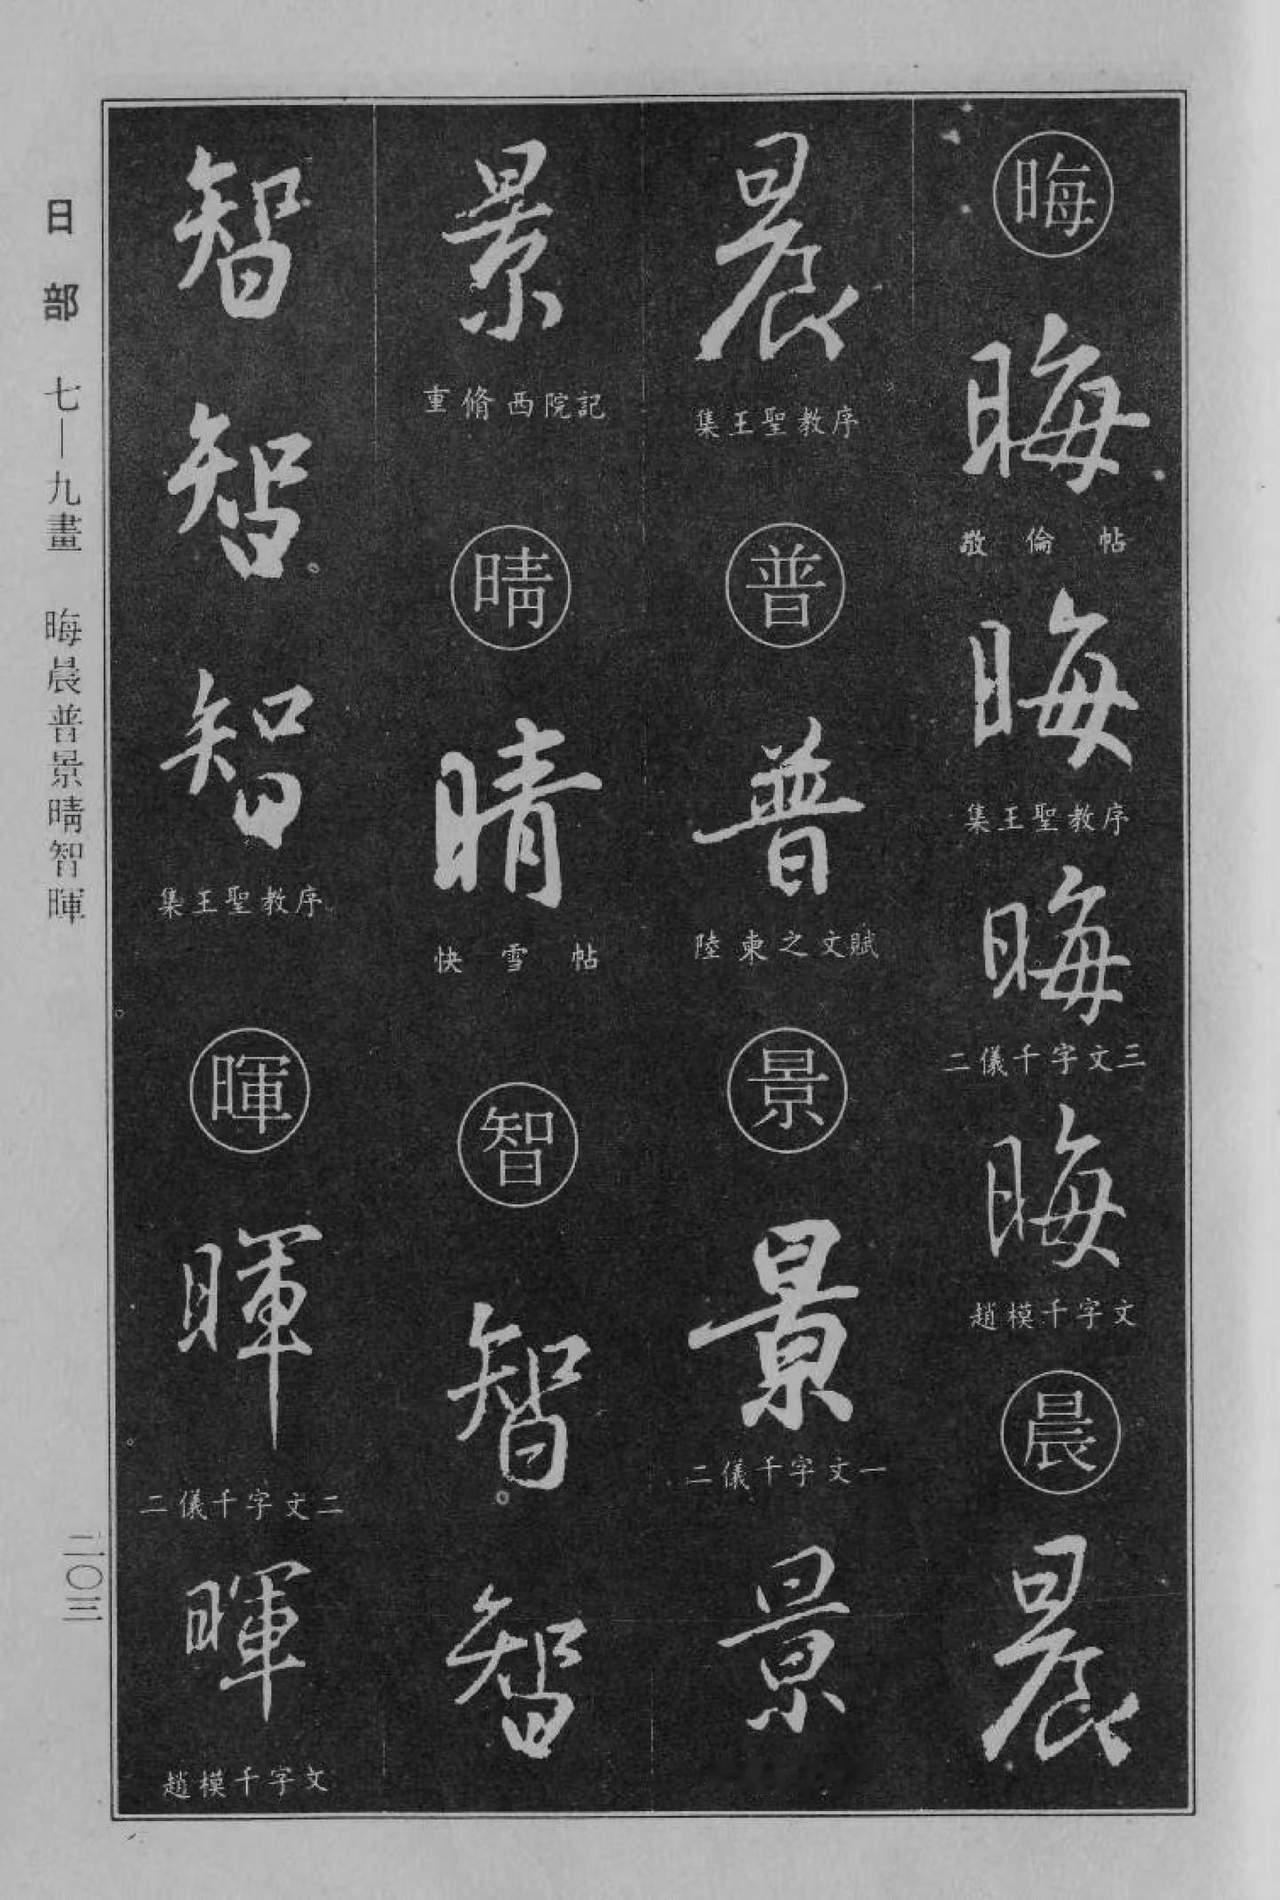 晦
晦
敬倫帖
晦
集王聖教序
晦
二儀千字文三
晦
趙模千字文
晨
晨
晨
集王聖教序
普
普
陸柬之文賦
景
景
二儀千字文一
景
景
重脩西院記
晴
晴
快雪帖
智
智
智
智
智
智
集王聖教序
暉
暉
二儀千字文二
暉
趙模千字文
日部 七—九畫 晦晨普景晴智暉
二〇三